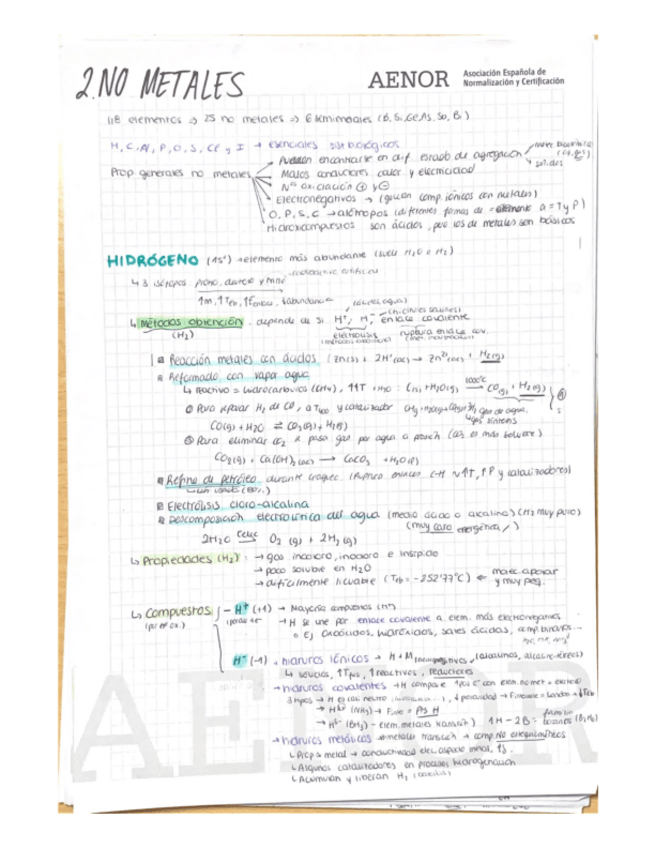 2. NO METALES
AENOR Asociación Española de
Normalización y Certificación
118 elementos → 25 no metales → 6 semimetales (B, Si, Ge, As, Sb, Bi)
H, C, N, P, O, S, Cl y I → esenciales sist. biológicos
Prop. generales no metales
Pueden encontrarse en dif. estado de agregación
sólidos
Malos conductores calor y electricidad
Nos oxidación ⊕ y ⊖
Electronegativos → (forman comp. iónicos con metales)
O, P, S, C → alótropos (diferentes formas de = elemento a = T y P)
Hidroxicompuestos son ácidos, pero los de metales son básicos
HIDRÓGENO (1s¹) → elemento más abundante (suele H₂O o H₂)
↳ 3 isótopos protio, deuterio y tritio
↑m, ↑Teb, ↑Eenlace, ↓abundancia
↳ Métodos obtención: depende de si H⁺, H⁻, enlace covalente
(H₂)
electrólisis ruptura enlace cov.
Reacción metales con ácidos (Zn(s) + 2H⁺(ac) → Zn²⁺(ac) + H₂(g))
Reformado con vapor agua
↳ reactivo = hidrocarburos (CH₄), ↑↑T + H₂O : C(s) + H₂O(g) 1000ºC → CO(g) + H₂(g)
Para separar H₂ de CO, a T y catalizador
gas de agua
gas síntesis
CO(g) + H₂O ⇌ CO₂(g) + H₂(g)
Para eliminar CO₂ → pasa gas por agua a presión (CO₂ es más soluble)
CO₂(g) + Ca(OH)₂(ac) → CaCO₃ + H₂O(l)
Refino de petróleo durante craqueo (ruptura enlaces C-H ~ ↑T, ↑P y catalizadores)
Electrólisis cloro-alcalina
Descomposición electrolítica del agua (medio ácido o alcalino) (H₂ muy puro)
(muy caro energética)
2H₂O → O₂ (g) + 2H₂ (g)
↳ Propiedades (H₂): → gas incoloro, inodoro e insípido
→ poco soluble en H₂O
→ difícilmente licuable (Teb = -252'77ºC) ← molec. apolar
y muy peq.
↳ Compuestos: – H⁺ (+1) → Mayoría compuestos
→ H se une por enlace covalente a elem. más electronegativos
Ej. oxoácidos, hidróxidos, sales ácidas, comp. binarios...
H⁻ (-1) → hidruros iónicos → H + M (alcalinos, alcalinotérreos)
↳ sólidos, ↑Tfus, ↑reactivos, reductores
→ hidruros covalentes → H comparte 1 par e⁻ con elem. no met.
3 tipos → H
→ hidruros metálicos → metales transición → comp. NO estequiométricos
↳ Prop. ≈ metal → conductividad elec.
↳ Algunos catalizadores en procesos hidrogenación
↳ Acumulan y liberan H₂
AENOR